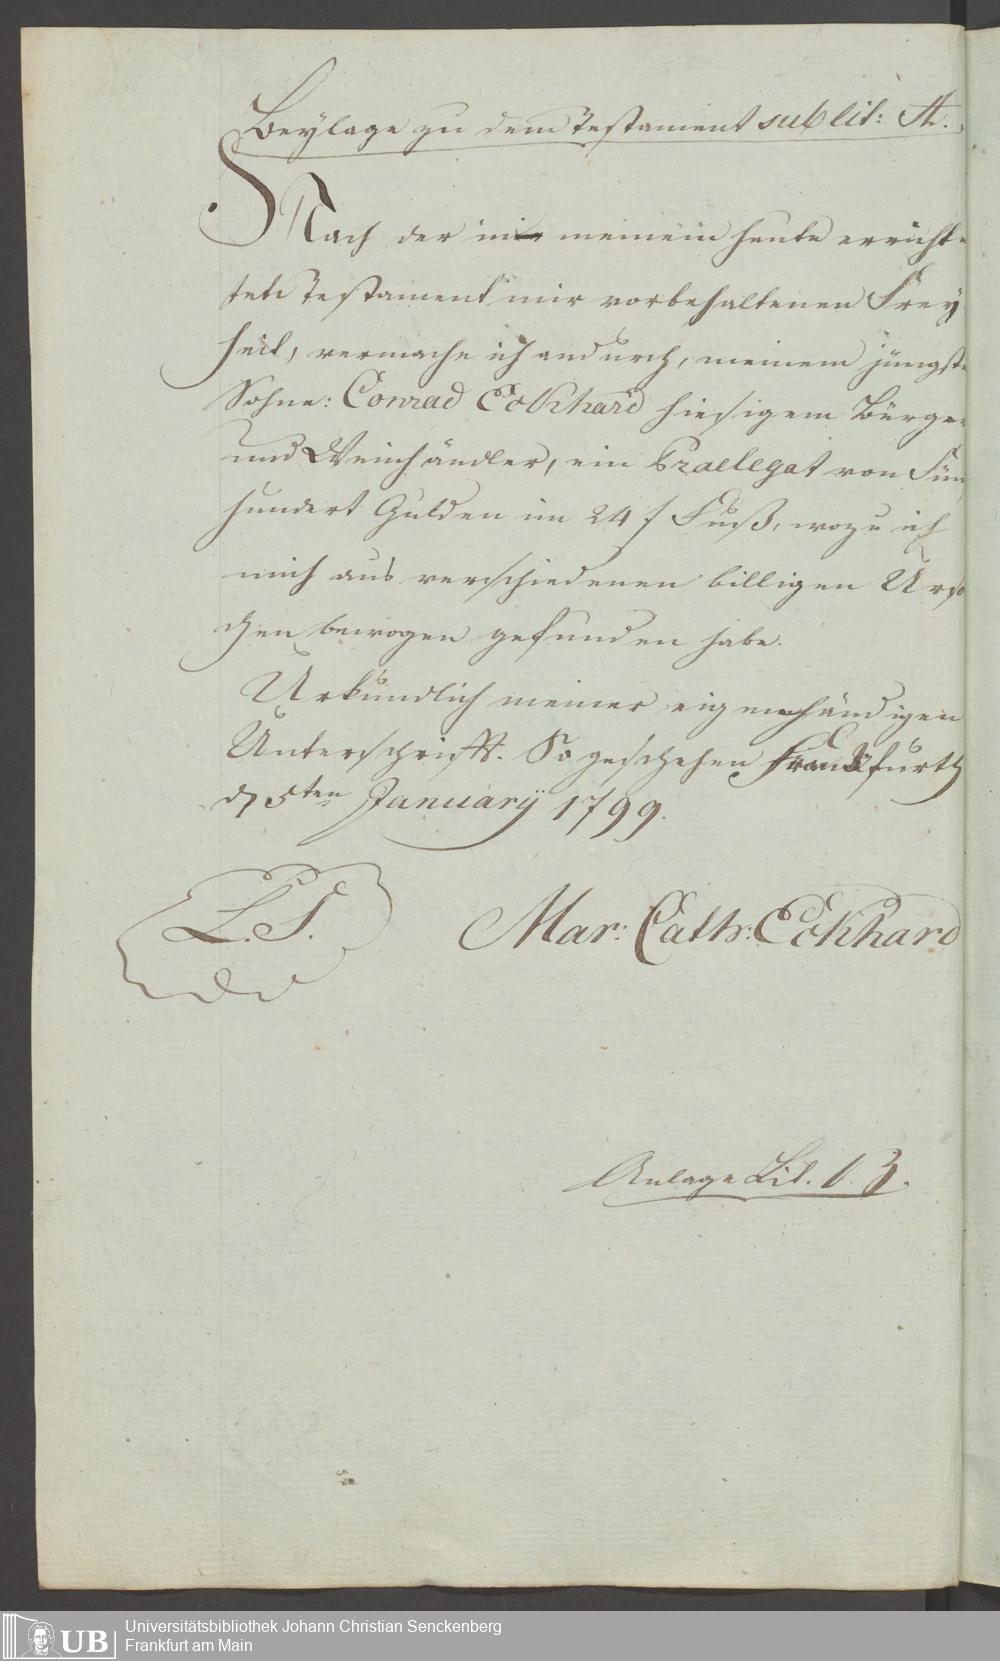 Beylage zu dem Testament sub lit: A.
Nach der in meinem heute errichte
ten Testament mir vorbehaltenen Frey
heit, vermache ich andurch, meinem jüngste
Sohne: Conrad Eckhard hiesigem Bürger
und Weinhändler, ein Praelegat von Fün
hundert Gulden im 24 f Fuß, wozu ich
mich aus verschiedenen billigen Ursa
chen bewogen gefunden habe.
Urkundlich meiner eigenhändigen
Unterschrifft. So geschehen Frankfurth
d 5ten Januarÿ 1799.
L. S.
Mar: Cath: Eckhard
Anlage Lit.
Universitätsbibliothek Johann Christian Senckenberg
Frankfurt am Main
UB